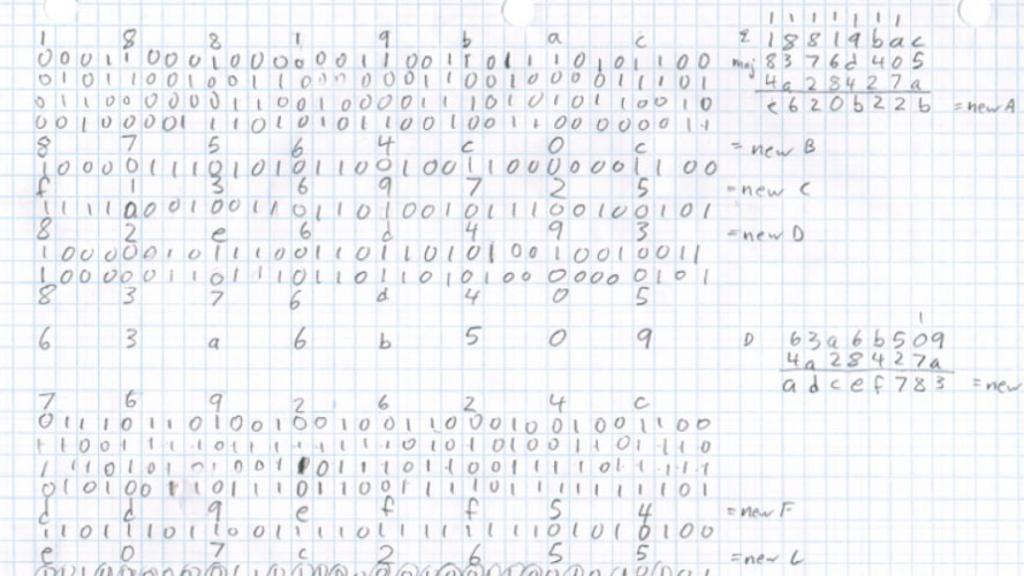 1 8 8 1 9 b a c
00011000100000011001101110101100
01011001001100000011001000011101
01100000011001000011101010110010
00100001110101011001001100000011
8 7 5 6 4 c 0 c = new B
10000111010101100100110000001100
f 1 3 6 9 7 2 5 = new C
11110001001101101001011100100101
8 2 e 6 d 4 9 3 = new D
10000010111001101101010010010011
10000011011101101101010000000101
8 3 7 6 d 4 0 5
6 3 a 6 b 5 0 9
7 6 9 2 6 2 4 c
01110110100100100110001001001100
11001111011111111010101001101110
11101010100110111011001111011111
01010011011101100111101111111101
d d 9 e f f 5 4 = new F
11011101100111101111111101010100
e 0 7 c 2 6 5 5 = new G
1 1 1 1 1 1 1
Σ 18819bac
maj 8376d405
4a28427a
e620b22b = new A
1
D 63a6b509
4a28427a
adcef783 = new